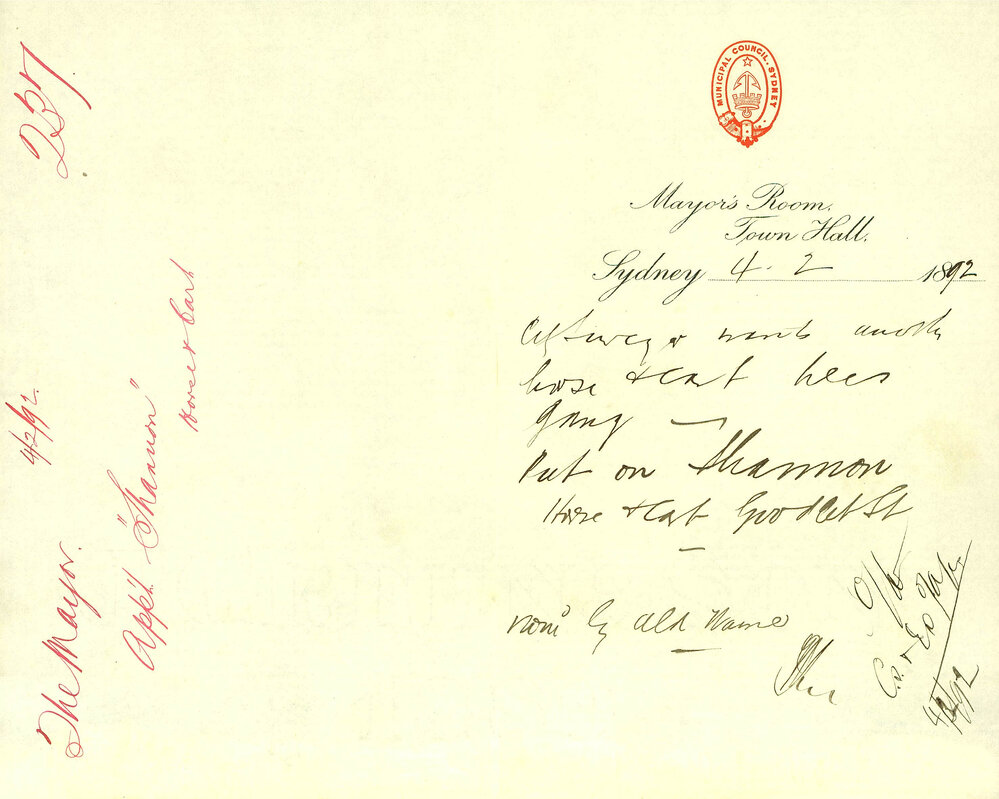 MUNICIPAL COUNCIL. SYDNEY
Mayor's Room.
Town Hall.
Sydney 4.2 1892
City Surveyor wants another
horse & cart
gang —
Put on Shannon
Horse & Cart Goodlet St
—
nom'd by Ald Hawie
4/2/92
The Mayor. 4/2/92. 257
App't "Shannon"
Horse & Cart